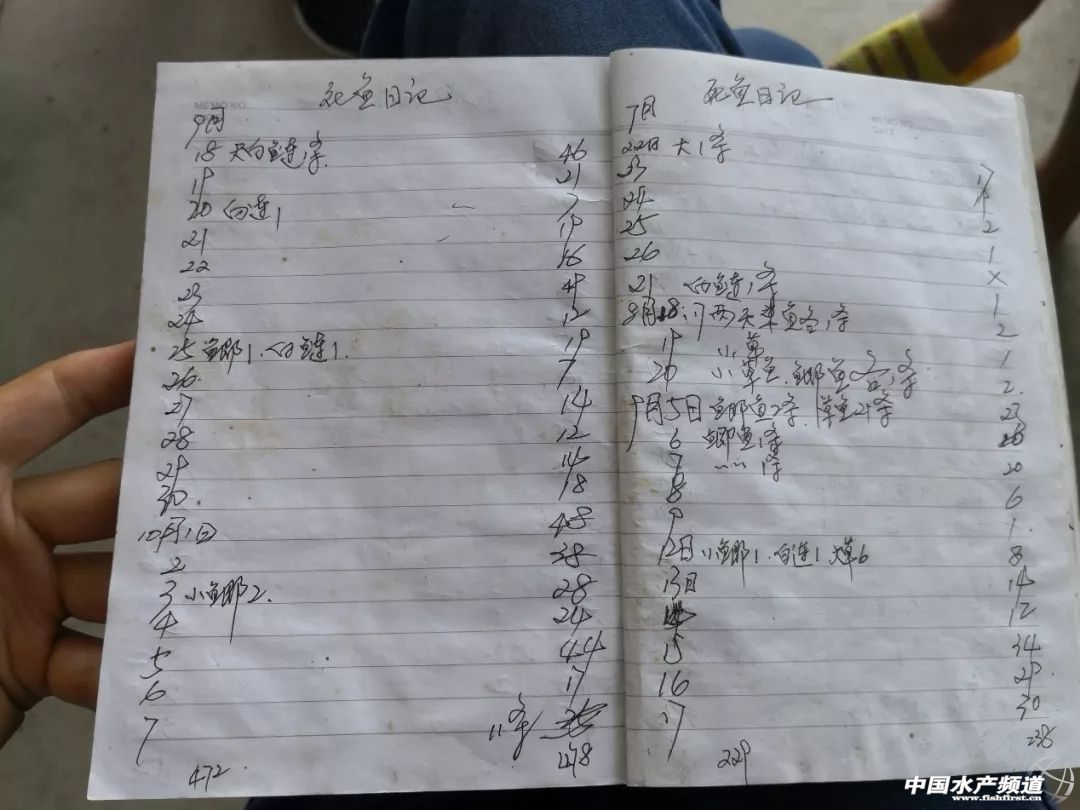 MEMO NO.
死鱼日记
9月
18 大白鲢1条 46
19 21
20 白连1 7
21 19
22 16
23 49
24 12
25 鱼郎1.白鲢1. 19
26. 7
27 14
28 12
29 14
30. 18
10月1日 48
2 38
3 小鱼郎2. 28
4 24
5 44
6 17
7 11条
472 448
死鱼日记
MEMO NO.
DATE
7月
22日 大1条
23 17
24
25 2
26 1
21 白鲢1条 X
8月18:17两天草鱼各1条 1
19 小草 2
20 小草鱼.鲫鱼各1条 1
9月5日 鲫鱼2条.草鱼21条 23
6 鲫鱼1条
7 〃〃1条 20
8 6
9 1.
12日 小鲫1.白连1.大草6 8
13日 14
12
15 34
16 29
17 30
229 238
中国水产频道
www.fishfirst.cn